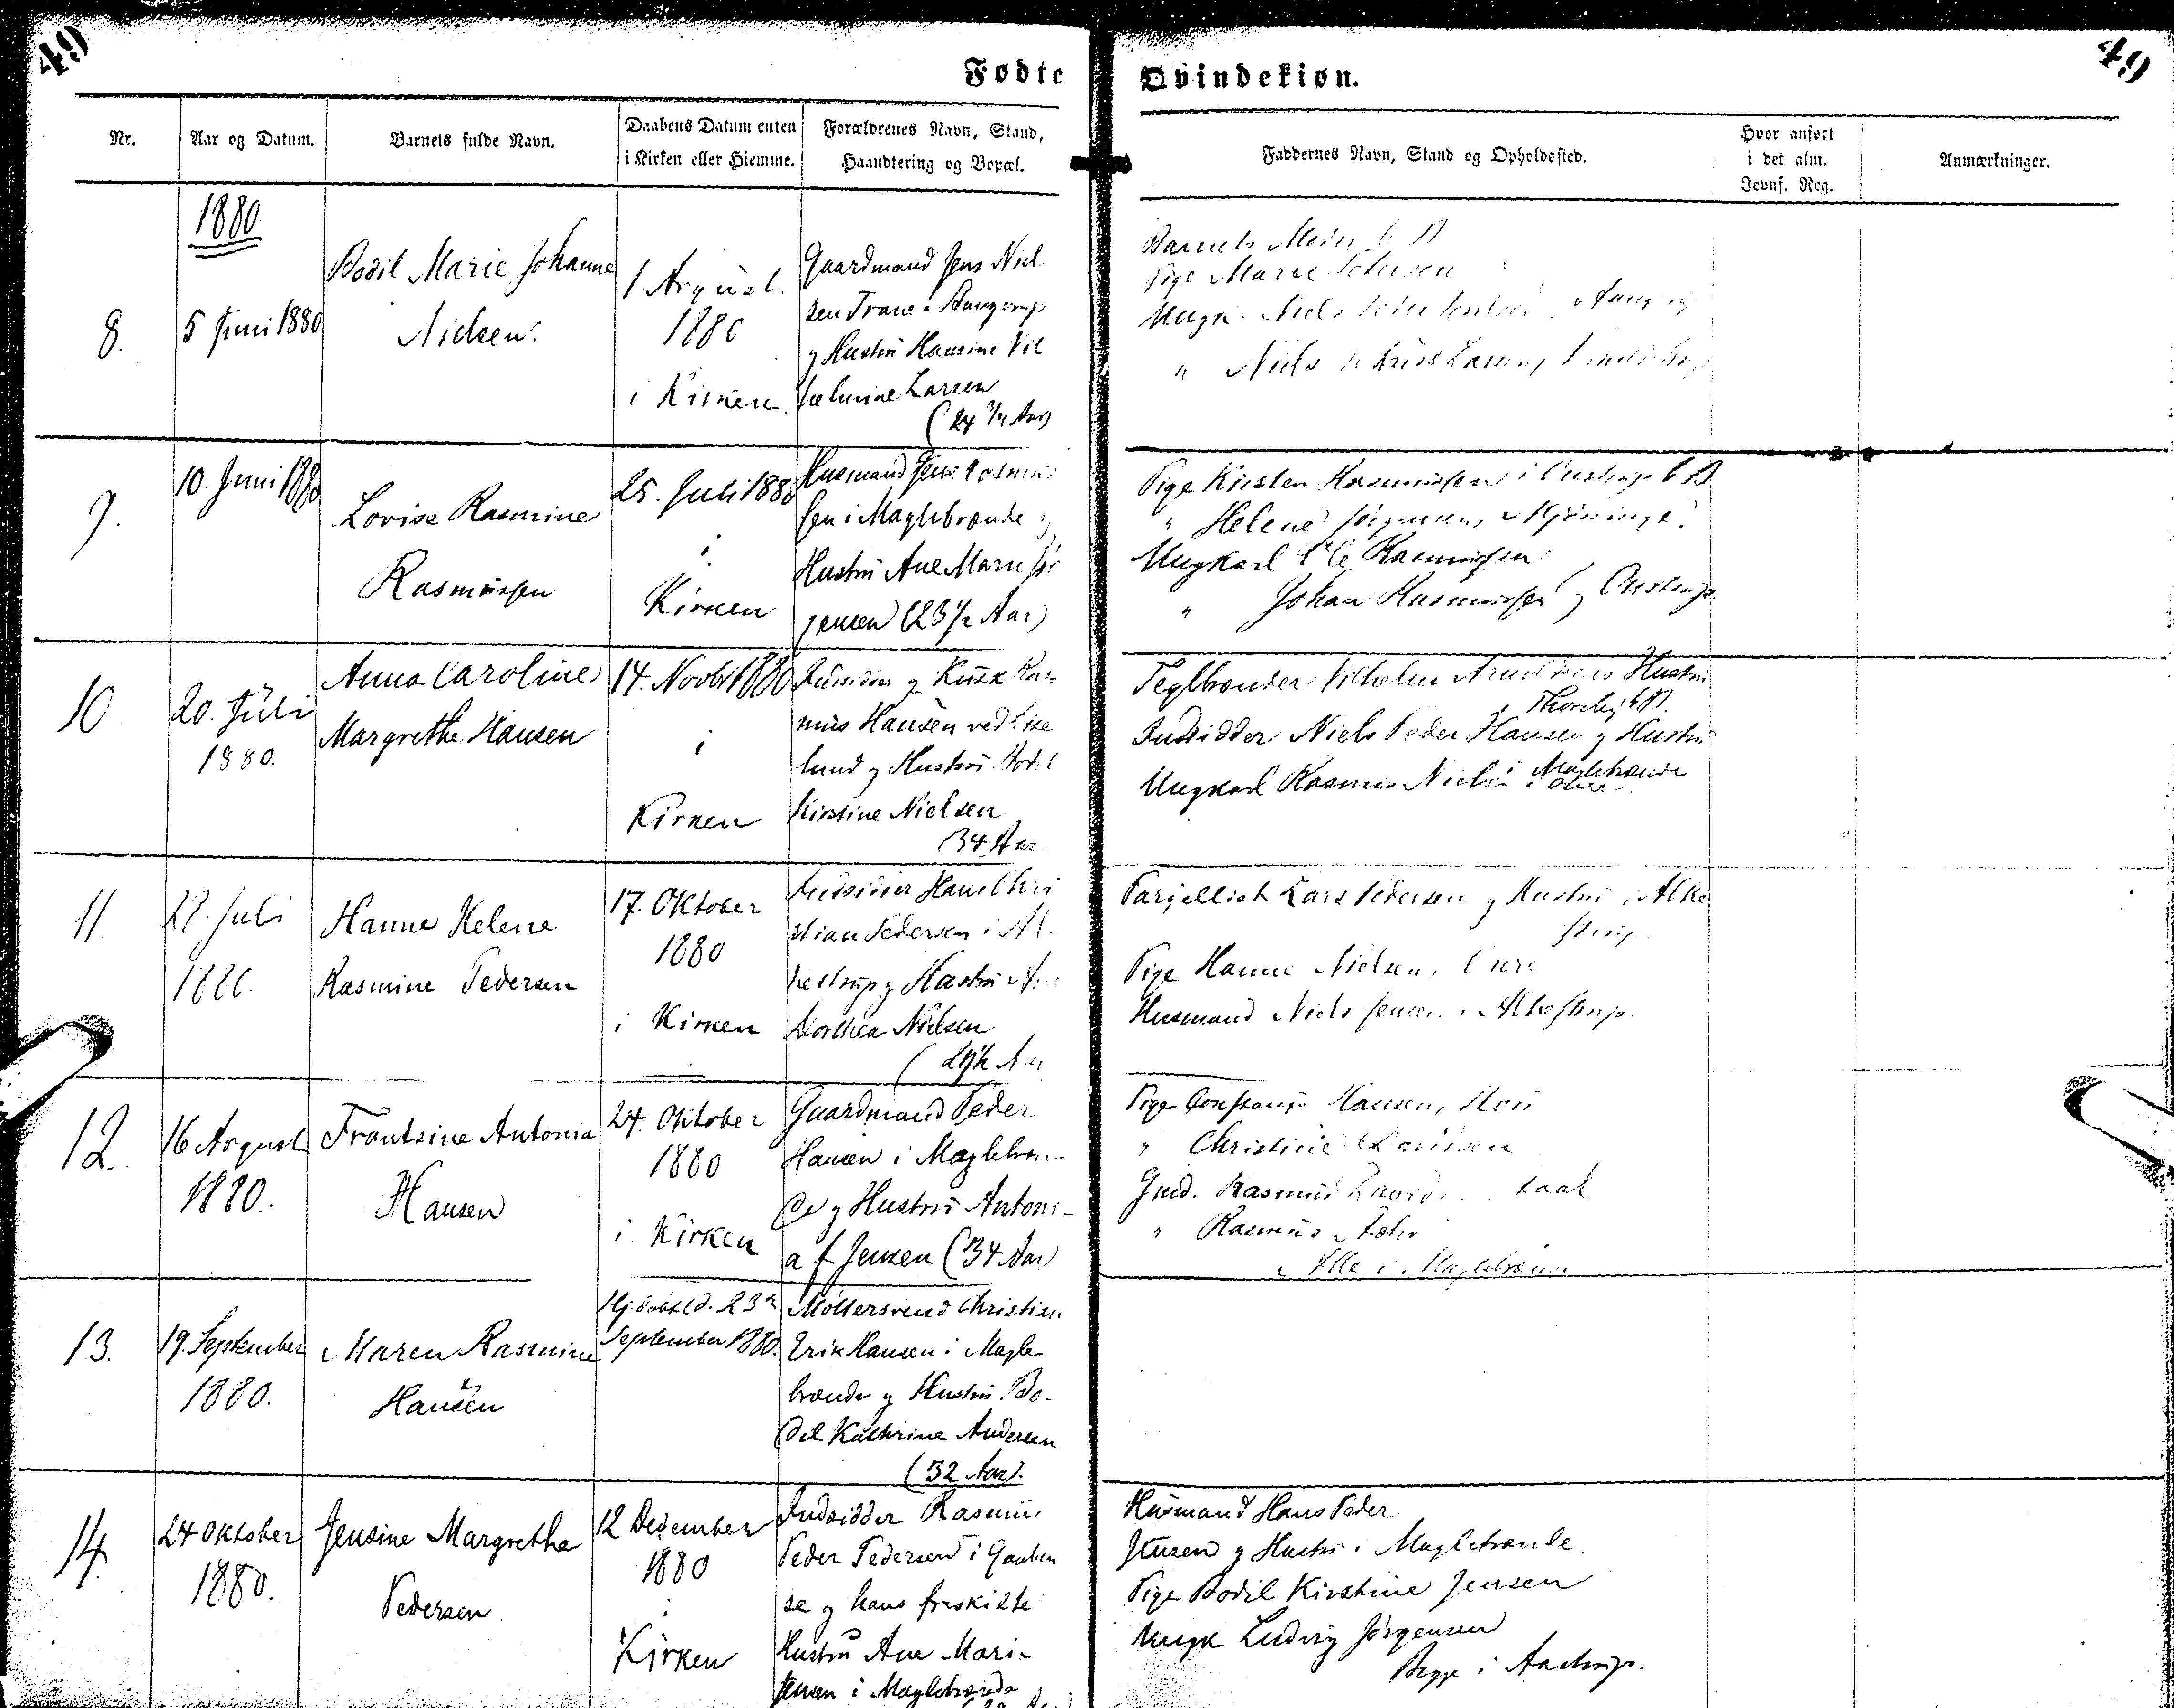 49
49
Fødte
Qvindekiøn.
Nr.
Aar og Datum.
Barnets fulde Navn.
Daabens Datum enten
i Kirken eller Hiemme.
Forældrenes Navn, Stand,
Haandtering og Bopæl.
Faddernes Navn, Stand og Opholdssted.
Hvor anført
i det alm.
Jevnf. Reg.
Anmærkninger.
1880
8.
5 Juni 1880
Bodil Marie Johanne
Nielsen.
1 August
1880
i Kirken
Gaardmand Jens Niel
sen Trane i
y Hustru Hansine Vil
helmine Larsen
(24 3/4 Aar)
Barnets Moder
Pige Marie Petersen
Ungk. Niels
" Niels Larsen
9.
10. Juni 1880
Lovise Rasmine
Rasmussen
25. Juli 1880
i
Kirken
Husmand Jens Rasmus
sen i Maglebrænde y
Hustru Ane Marie Jør
gensen (23 1/2 Aar)
Pige Kirsten Rasmussen i
" Helene Jørgensen,
Ungkarl Ole Rasmussen
" Johan Rasmussen
10
20. Juli
1880.
Anna Caroline
Margrethe Hansen
14. Novbr 1880
i
Kirken
Indsidder y Kusk Ras-
mus Hansen ved Lise
lund y Hustru Bodil
Kirstine Nielsen
34 Aar.
Teglbrænder Vilhelm Hustru
Indsidder Niels Peder Hansen y Hustru
i Maglebrænde
Ungkarl Rasmus
11.
27. Juli
1880.
Hanne Helene
Rasmine Pedersen
17. Oktober
1880
i Kirken
Indsidder Hans Chri
stian Pedersen i Al-
kestrup y Hustru
Dorthea Nielsen
Parcellist Lars Pedersen y Hustru i Alke
strup
Pige Hanne Nielsen,
Husmand Niels Jensen i Alkestrup
12.
16 August
1880.
Frantsine Antonia
Hansen
24. Oktober
1880
i Kirken
Gaardmand Peder
Hansen i Maglebræn-
de y Hustru Antoni-
a f Jensen (34 Aar)
Pige Constance Hansen,
" Christine
Gmd. Rasmus
" Rasmus
Alle i Maglebrænde
13.
19. September
1880.
Maren Rasmine
Hansen
Hj. døbt d. 23e
September 1880.
Møllersvend Christian
Erik Hansen i Magle-
brænde y Hustru Bo-
dil Kathrine Andersen
(32 Aar).
14.
24 Oktober
1880.
Jensine Margrethe
Pedersen.
12 December
1880
i
Kirken
Indsidder Rasmus
Peder Pedersen i Gaaben
se y hans fraskilte
Hustru Ane Marie
Jensen i Maglebrænde
Husmand Hans Peder
Jensen y Hustru i Maglebrænde.
Pige Bodil Kirstine Jensen
Ungk Ludvig Jørgensen
Begge i Aastrup.